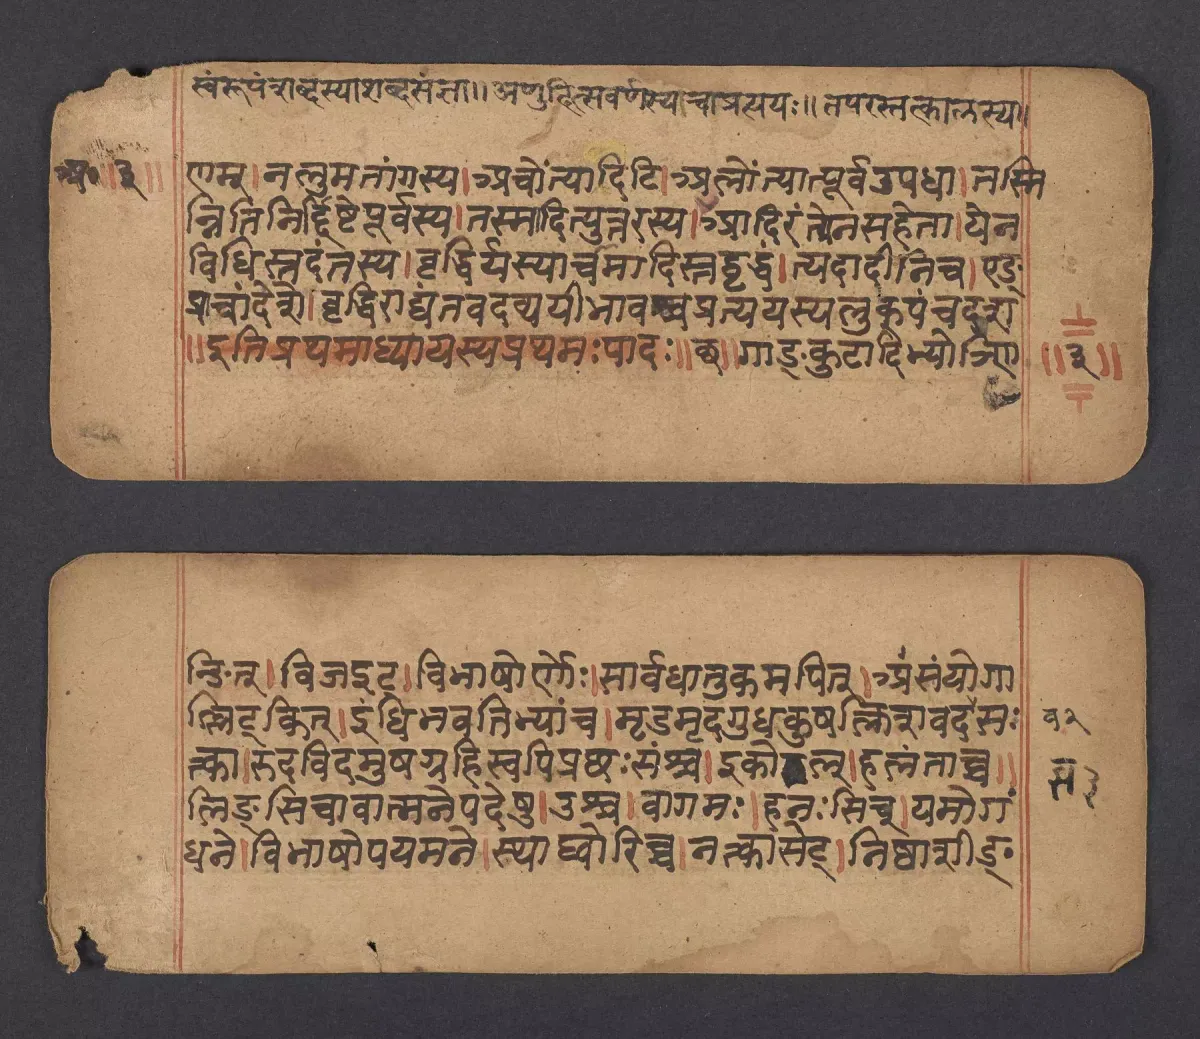 स्वंरूपंशब्दस्याशब्दसंज्ञा॥ अणुदित्सवर्णस्यचाप्रत्ययः॥ तपरस्तत्कालस्य॥
अ॰॥३॥ णम्। नलुमतांगस्य। अचोंत्यादिटि। अलोंत्यात्पूर्वउपधा। तस्मि
न्नितिनिर्द्दिष्टेपूर्वस्य। तस्मादित्युत्तरस्य। आदिरंत्येनसहेता। येन
विधिस्तदंतस्य। वृद्धिर्यस्याचामादिस्तद्वृद्धं। त्यदादीनिच। एङ्
प्राचांदेशे। वृद्धिराद्यंतवदव्ययीभावश्चप्रत्ययस्यलुक्पंचदश
॥इतिप्रथमाध्यायस्यप्रथमःपादः॥ छ॥ गाङ्कुटादिभ्योञ्णि ॥३॥
न्ङित्। विजइट्। विभाषोर्णोः। सार्वधातुकमपित्। असंयोगा
ल्लिट्कित्। इंधिभवतिभ्यांच। मृडमृदगुधकुषक्लिशवदवसः
त्क्वा। रुदविदमुषग्रहिस्वपिप्रछःसंश्च। इकोझल्। हलंताच्च॥
लिङ्सिचावात्मनेपदेषु। उश्च। वागमः। हनःसिच्। यमोगं
धने। विभाषोपयमने। स्थाघ्वोरिच्च। नत्क्वासेट्। निष्ठाशीङ्